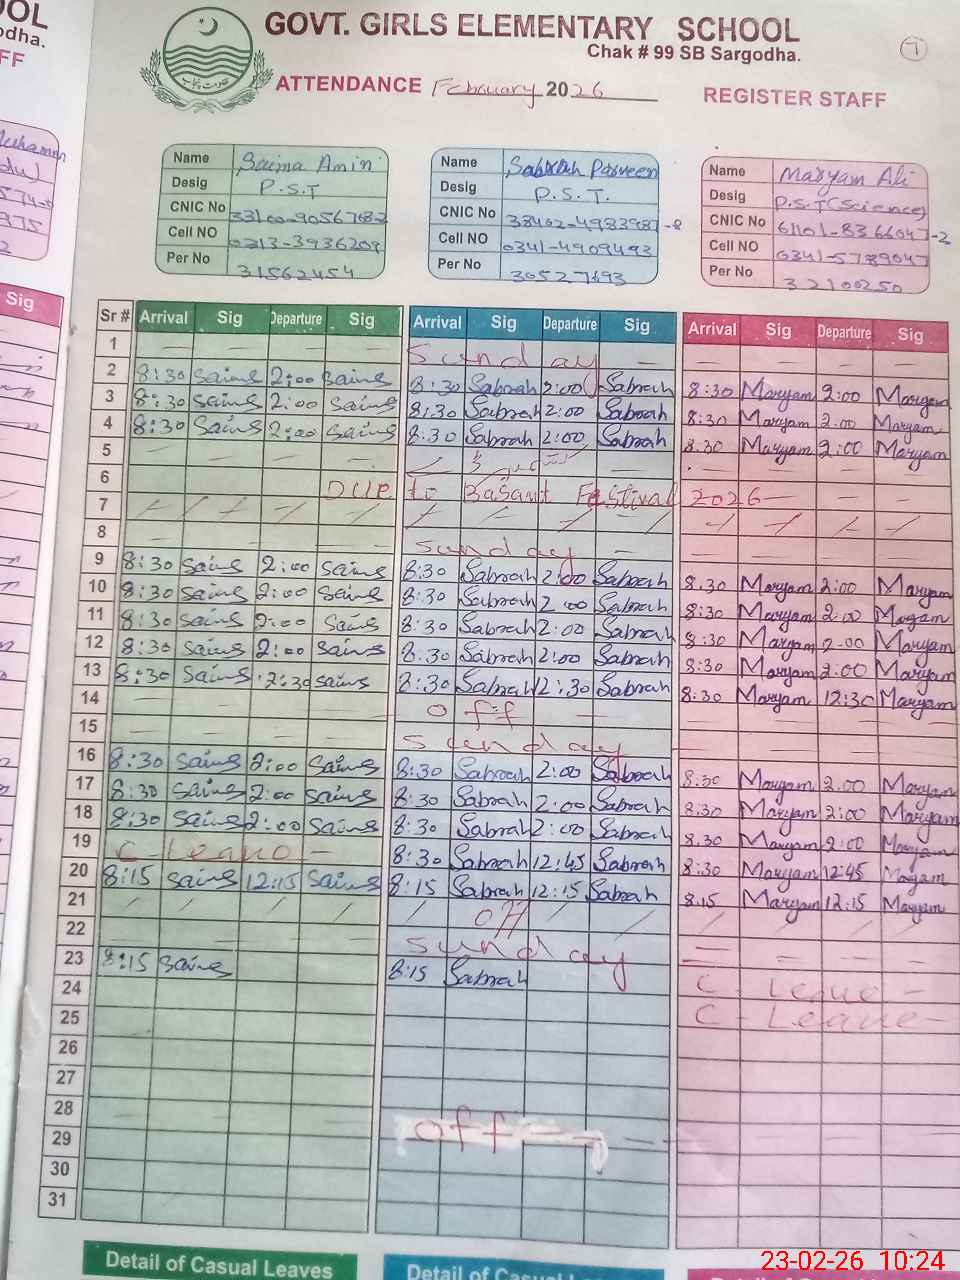 GOVT. GIRLS ELEMENTARY SCHOOL
Chak # 99 SB Sargodha.
ATTENDANCE February 2026
REGISTER STAFF
Name Saima Amin
Desig P.S.T
CNIC No
Cell NO 0313-3936209
Per No 31562454
Name Sabrah Parveen
Desig P.S.T.
CNIC No 38402-4983987-8
Cell NO 0341-4909493
Per No 30527693
Name Maryam Ali
Desig P.S.T (Science)
CNIC No 61101-8366047-2
Cell NO 0341-5789047
Per No 32100250
Sr # Arrival Sig Departure Sig Arrival Sig Departure Sig Arrival Sig Departure Sig
1 Sunday
2 8:30 Saima 2:00 Saima 8:30 Sabrah 2:00 Sabrah 8:30 Maryam 2:00 Maryam
3 8:30 Saima 2:00 Saima 8:30 Sabrah 2:00 Sabrah 8:30 Maryam 2:00 Maryam
4 8:30 Saima 2:00 Saima 8:30 Sabrah 2:00 Sabrah 8:30 Maryam 2:00 Maryam
5
6 Due to Basant Festival 2026
7
8 Sunday
9 8:30 Saima 2:00 Saima 8:30 Sabrah 2:00 Sabrah 8:30 Maryam 2:00 Maryam
10 8:30 Saima 2:00 Saima 8:30 Sabrah 2:00 Sabrah 8:30 Maryam 2:00 Maryam
11 8:30 Saima 2:00 Saima 8:30 Sabrah 2:00 Sabrah 8:30 Maryam 2:00 Maryam
12 8:30 Saima 2:00 Saima 8:30 Sabrah 2:00 Sabrah 8:30 Maryam 2:00 Maryam
13 8:30 Saima 12:30 Saima 8:30 Sabrah 12:30 Sabrah 8:30 Maryam 12:30 Maryam
14 off
15 Sunday
16 8:30 Saima 2:00 Saima 8:30 Sabrah 2:00 Sabrah 8:30 Maryam 2:00 Maryam
17 8:30 Saima 2:00 Saima 8:30 Sabrah 2:00 Sabrah 8:30 Maryam 2:00 Maryam
18 8:30 Saima 2:00 Saima 8:30 Sabrah 2:00 Sabrah 8:30 Maryam 2:00 Maryam
19 C-Leave 8:30 Sabrah 12:45 Sabrah 8:30 Maryam 12:45 Maryam
20 8:15 Saima 12:15 Saima 8:15 Sabrah 12:15 Sabrah 8:15 Maryam 12:15 Maryam
21 off
22 Sunday
23 8:15 Saima 8:15 Sabrah C-Leave
24 C-Leave
25
26
27
28 off
29
30
31
Detail of Casual Leaves
Detail of Casual Leaves
23-02-26 10:24